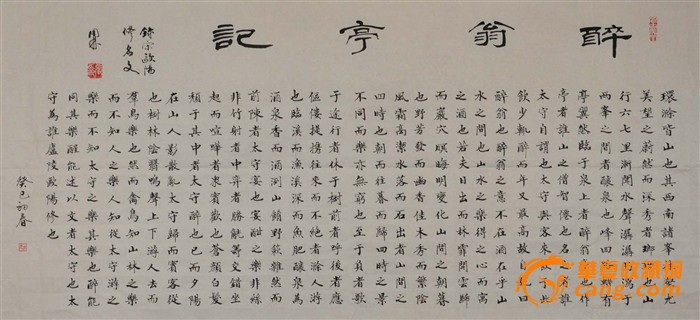 醉翁亭記
環滁皆山也其西南諸峯林壑尤
美望之蔚然而深秀者瑯琊也山
行六七里漸聞水聲潺潺而瀉于
兩峯之間者釀泉也峰回路轉有
亭翼然臨于泉上者醉翁亭也作
亭者誰山之僧智僊也名之者誰
太守自謂也太守與客來飲于此
飲少輒醉而年又最高故自號曰
醉翁也醉翁之意不在酒在乎山
水之間也山水之樂得之心而寓
之酒也若夫日出而林霏開雲歸
而巖穴暝晦明變化山間之朝暮
也野芳發而幽香佳木秀而繁陰
風霜高潔水落而石出者山間之
四時也朝而往暮而歸四時之景
不同而樂亦無窮也至于負者歌
于途行者休于樹前者呼後者應
傴僂提攜往來而不絕者滁人游
也臨溪而漁溪深而魚肥釀泉為
酒泉香而酒洌山餚野蔌雜然而
前陳者太守宴也宴酣之樂非絲
非竹射者中弈者勝觥籌交錯坐
起而諠嘩者衆賓歡也蒼顏白髮
頹于其中者太守醉也已而夕陽
在山人影散亂太守歸而賓客從
也樹林陰翳鳴聲上下游人去而
羣鳥樂也然而禽鳥知山林之樂
而不知人之樂人知從太守游之
樂而不知太守之樂其樂也醉能
同其樂醒能述以文者太守也太
守為誰廬陵歐陽修也
癸巳初春
錄宋歐陽
修名文
華夏收藏網
cang.com